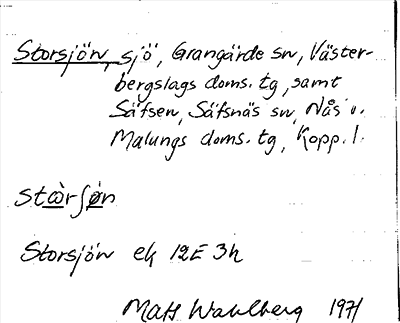 Storsjön, sjö, Grangärde sn, Väster-
bergslags doms. tg, samt
Säfsen, Säfsnäs sn, Nås o.
Malungs doms. tg, Kopp. l.
stòrʃøn
Storsjön ek 12E 3h
Mats Wahlberg 1971